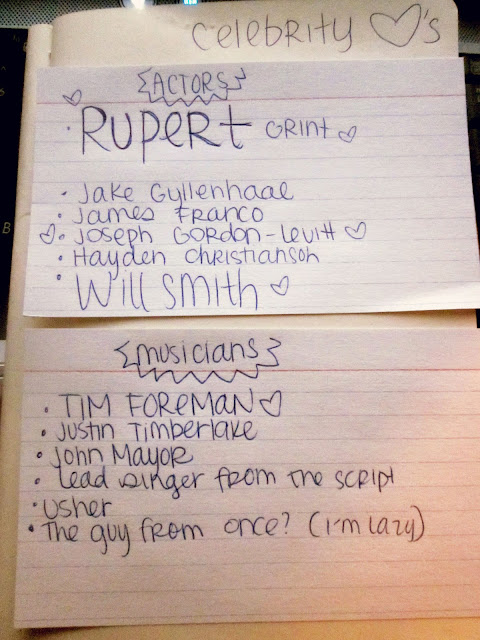 celebrity ♡'s
ACTORS
• Rupert Grint ♡
• Jake Gyllenhaal
• James Franco
♡• Joseph Gordon-Levitt ♡
• Hayden Christianson
• Will Smith ♡
musicians
• TIM FOREMAN ♡
• Justin Timberlake
• John Mayor
• Lead singer from the script
• Usher
• The guy from once? (I'm lazy)
B